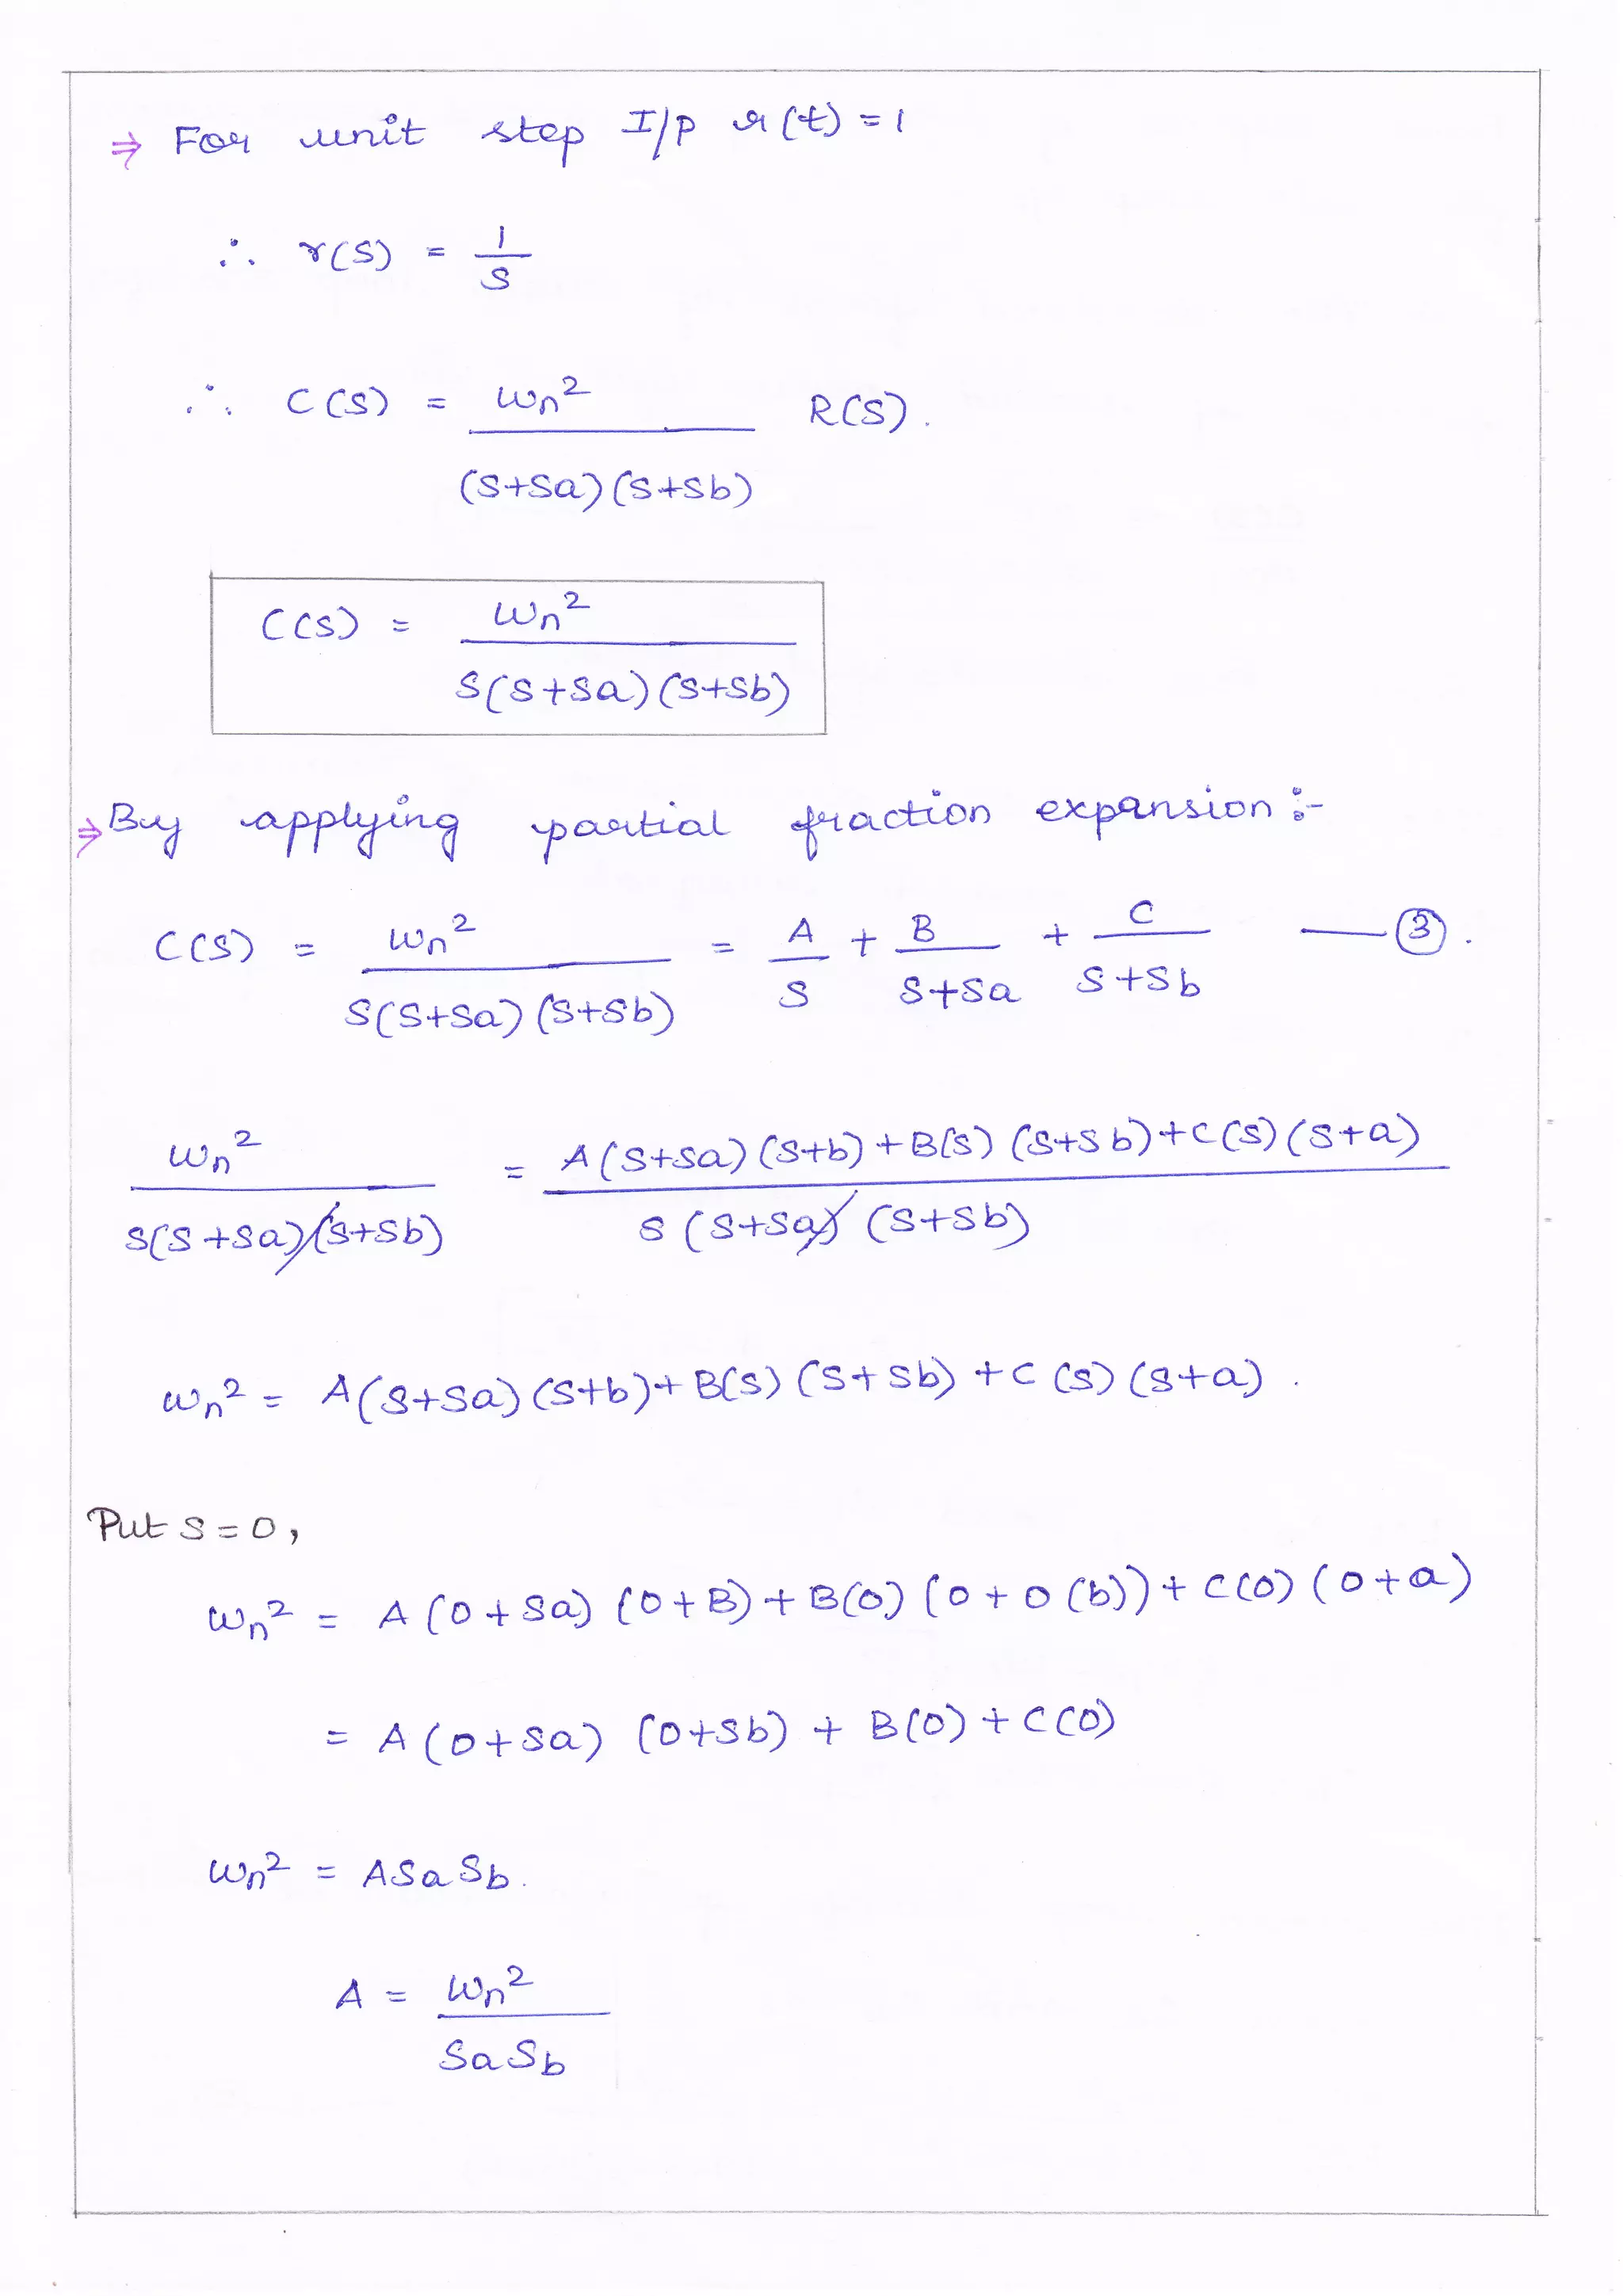 ⇒ For unit step I/p r(t) = 1
∴ r(S) = 1/S
∴ C(S) = ωn² / (S+Sa)(S+Sb) R(S).
C(S) = ωn² / S(S+Sa)(S+Sb)
⇒ By applying partial fraction expansion :-
C(S) = ωn² / S(S+Sa)(S+Sb) = A/S + B/S+Sa + C/S+Sb — ③.
ωn² / S(S+Sa)(S+Sb) = A(S+Sa)(S+b)+B(S)(S+Sb)+C(S)(S+a) / S(S+Sa)(S+Sb)
ωn² = A(S+Sa)(S+b)+B(S)(S+Sb)+C(S)(S+a).
Put S=0,
ωn² = A(0+Sa)(0+B)+B(0)(0+0(b))+C(0)(0+a)
= A(0+Sa)(0+Sb)+B(0)+C(0)
ωn² = ASaSb.
A = ωn² / SaSb